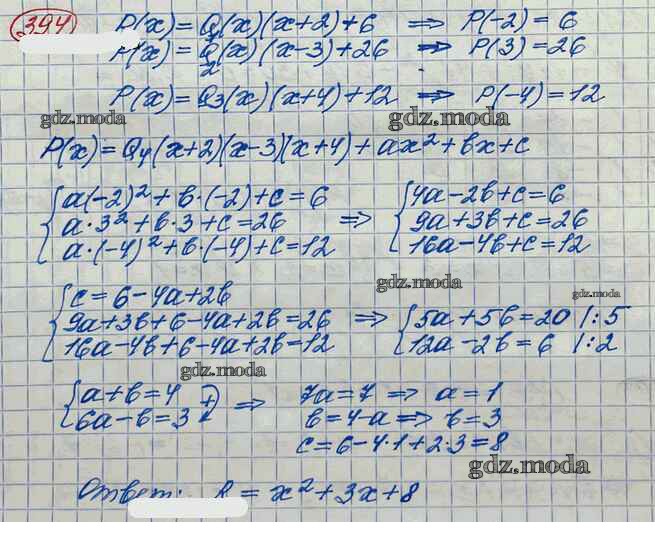 394
P(x) = Q₁(x)(x+2)+6 ⇒ P(-2) = 6
P(x) = Q₂(x)(x-3)+26 ⇒ P(3) = 26
P(x) = Q₃(x)(x+4)+12 ⇒ P(-4) = 12
gdz.moda gdz.moda
P(x) = Q₄(x+2)(x-3)(x+4)+ax²+bx+c
{ a(-2)²+b·(-2)+c=6 ⇒ { 4a-2b+c=6
a·3²+b·3+c=26 9a+3b+c=26
a·(-4)²+b·(-4)+c=12 16a-4b+c=12
gdz.moda gdz.moda
{ c=6-4a+2b
9a+3b+6-4a+2b=26 ⇒ { 5a+5b=20 |:5
16a-4b+6-4a+2b=12 12a-2b=6 |:2
gdz.moda gdz.moda
{ a+b=4 + ⇒ 7a=7 ⇒ a=1
6a-b=3 b=4-a ⇒ b=3
c=6-4·1+2·3=8
gdz.moda
Ответ: R = x²+3x+8